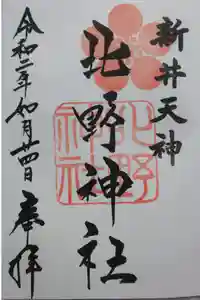 新井天神
北野神社
北野神社
令和二年如月廿四日
奉拝